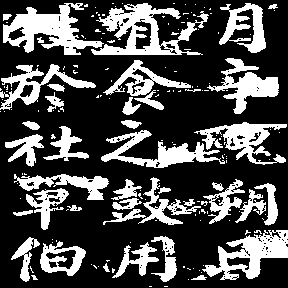 月辛醜朔日
有食之鼓用
牲於社單伯